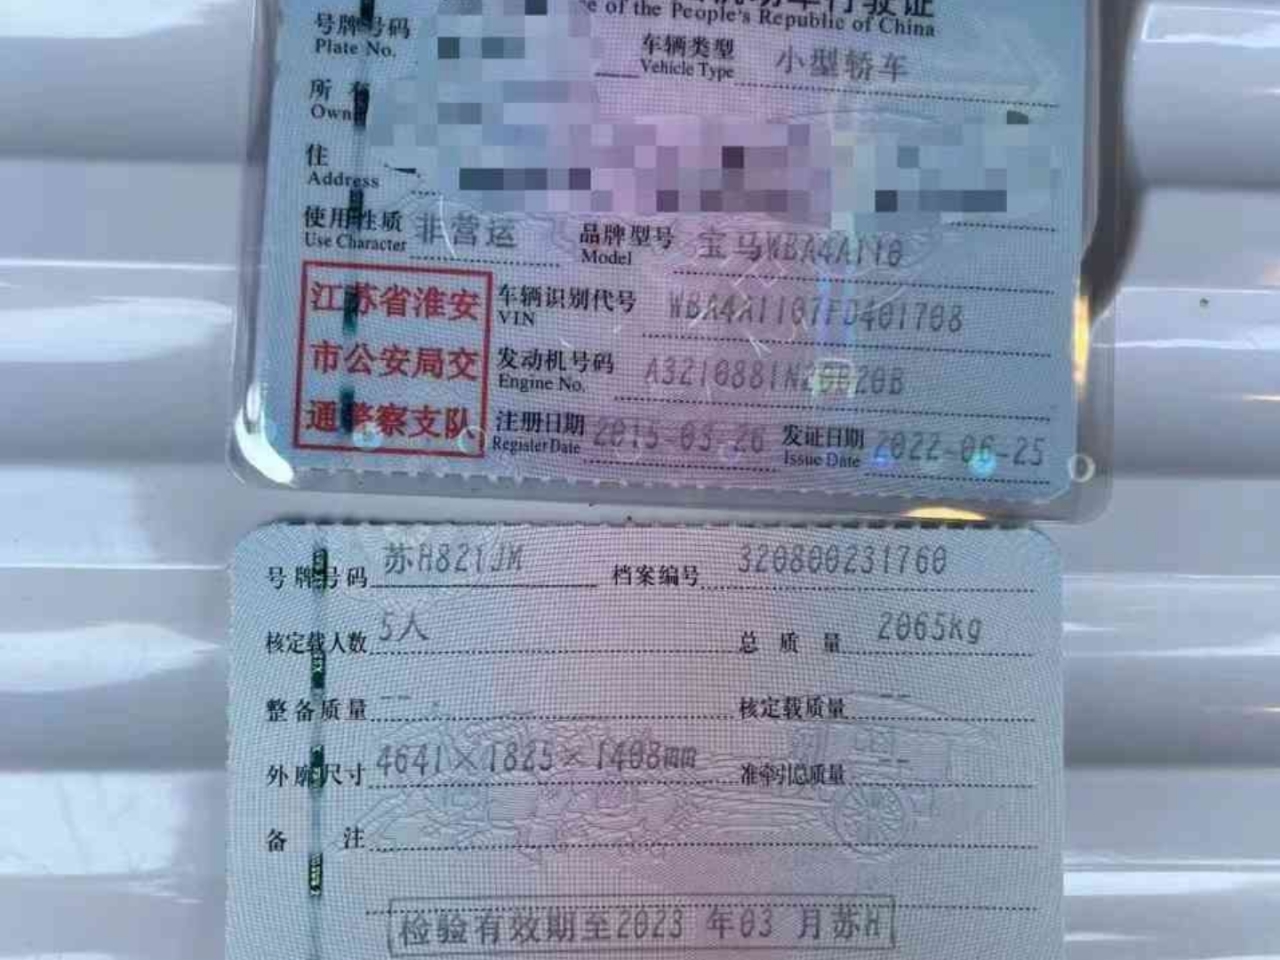 机动车行驶证
e of the People's Republic of China
号牌号码
Plate No.
车辆类型 小型轿车
Vehicle Type
所有
Own
住
Address
使用性质 非营运 品牌型号 宝马WBA4A110
Use Character Model
江苏省淮安
市公安局交
通警察支队
车辆识别代号 WBA4A1107FD401708
VIN
发动机号码 A3210881N20B20B
Engine No.
注册日期 2015-03-26 发证日期 2022-06-25
Register Date Issue Date
号牌号码 苏H821JM 档案编号 320800231760
核定载人数 5人 总质量 2065kg
整备质量 -- 核定载质量 --
外廓尺寸 4641×1825×1408mm 准牵引总质量 --
备注
检验有效期至2023年03月苏H